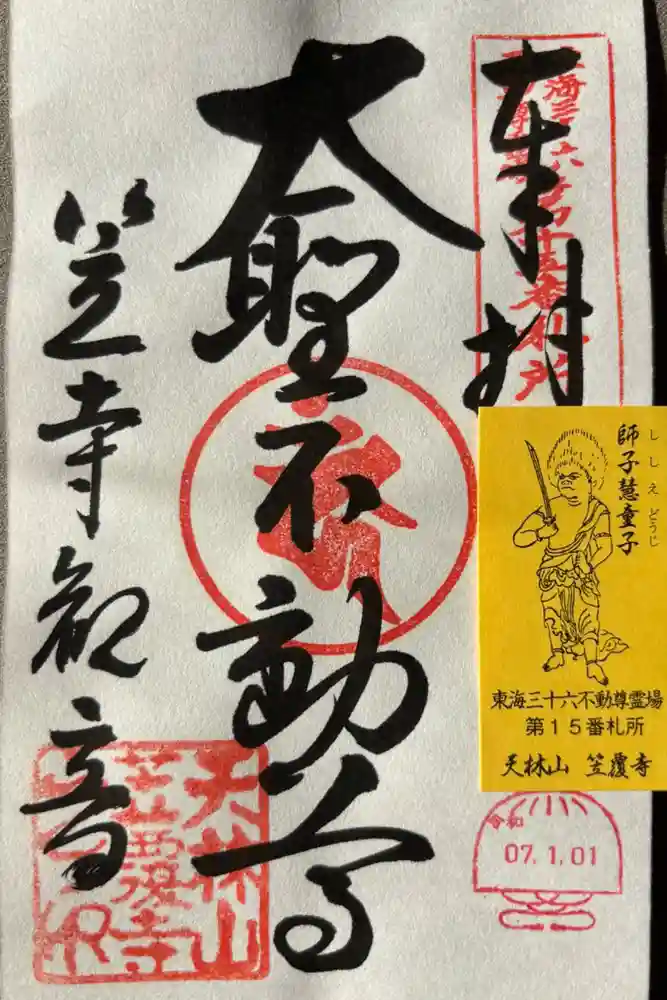 奉拝
東海三十六
不動尊霊場
第十五番札所
大聖不動尊
笠寺観音
天林山
笠覆寺
ししえどうじ
師子慧童子
東海三十六不動尊霊場
第15番札所
天林山 笠覆寺
令和
07.1.01